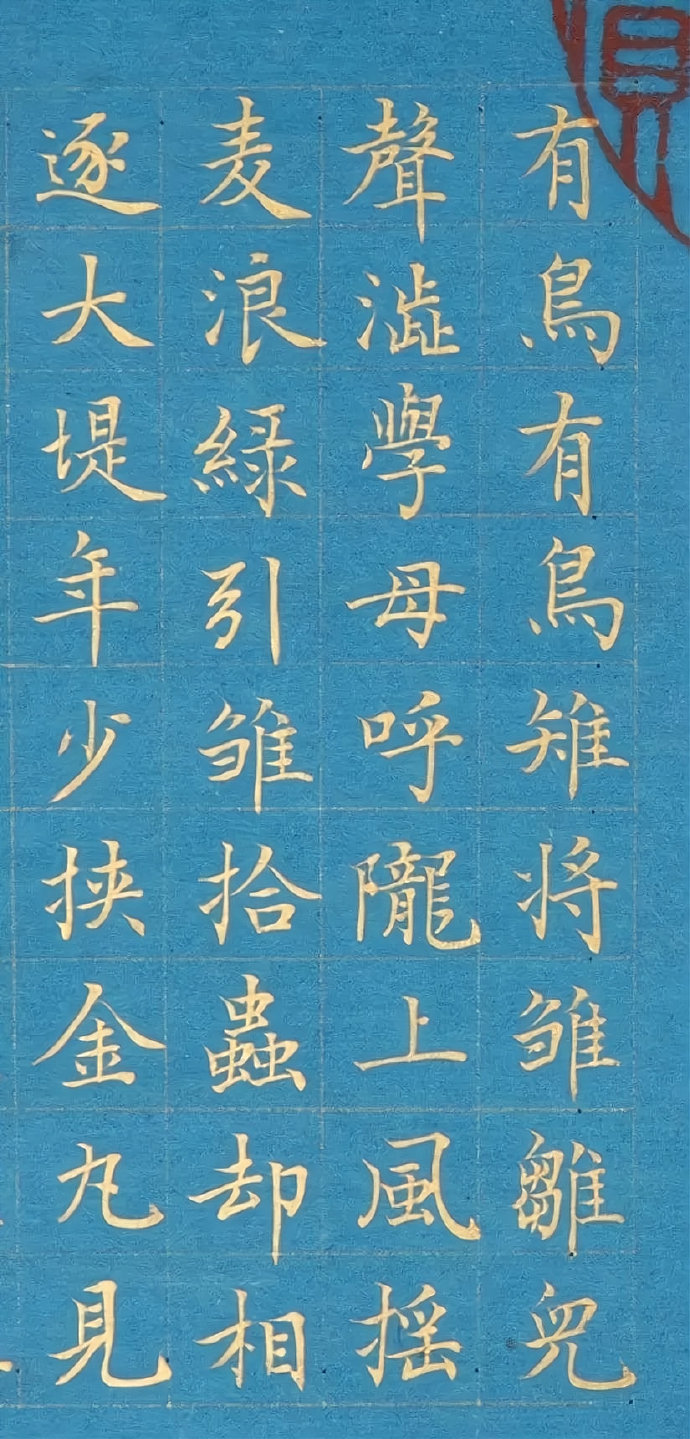 有鳥有鳥雉将雏雛皃
聲澁學母呼隴上風揺
麦浪緑引雏拾蟲却相
逐大堤年少挟金丸見